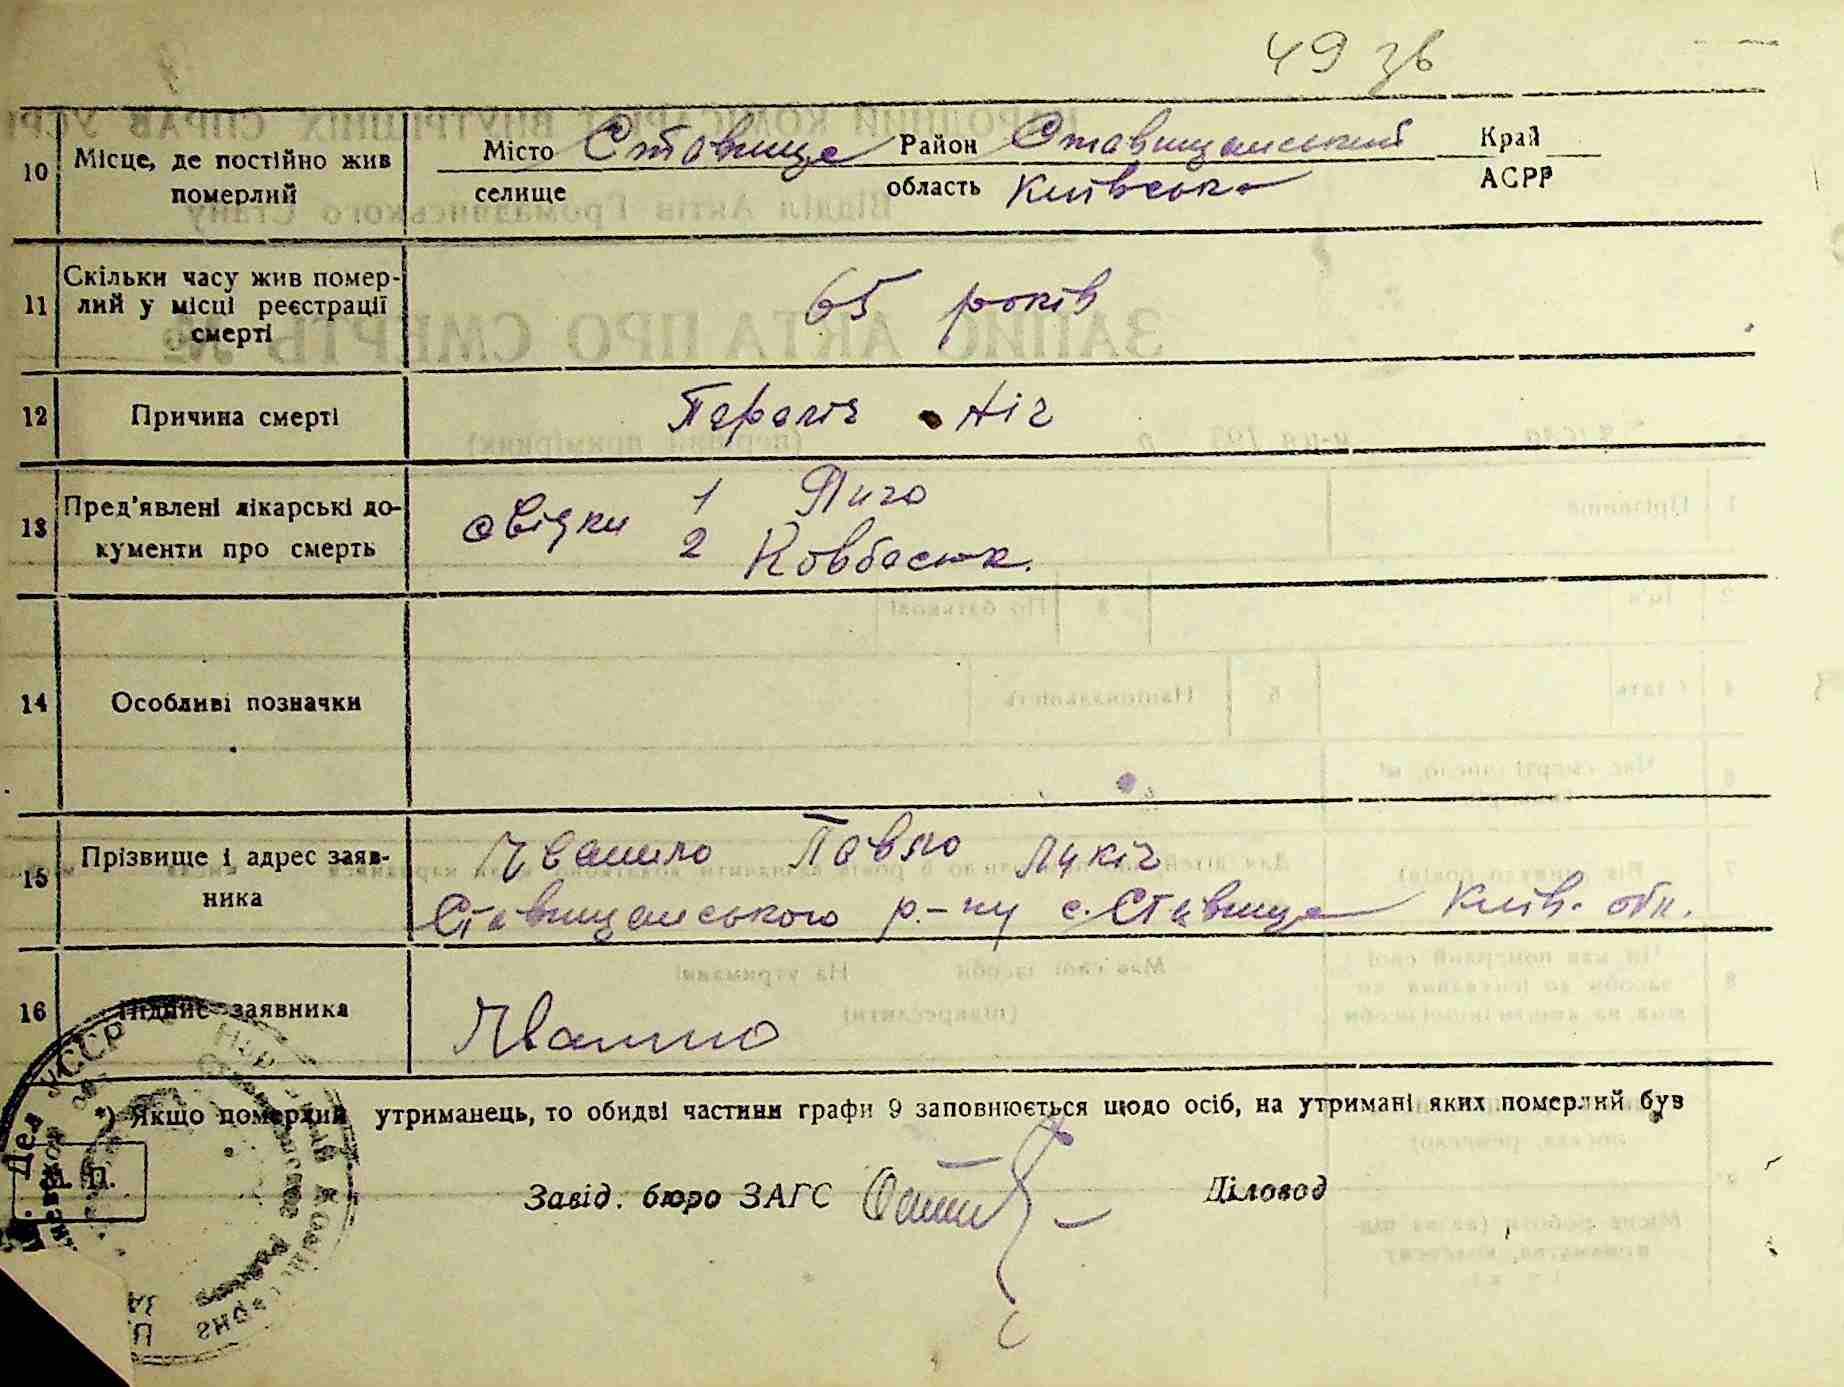 49 зв
10 Місце, де постійно жив померлий
Місто Ставище Район Ставищанський Край
селище область Київська АСРР
11 Скільки часу жив померлий у місці реєстрації смерті
65 років
12 Причина смерті
Параліч ніг
13 Пред'явлені лікарські документи про смерть
свідки 1 Пиго
2 Ковбасюк.
14 Особливі позначки
15 Прізвище і адрес заявника
Павло Лукіч
Ставищанського р.-ну с. Ставище Київ. обл.
16 Підпис заявника
*) Якщо померлий утриманець, то обидві частини графи 9 заповнюється щодо осіб, на утримані яких померлий був
М. П.
Завід. бюро ЗАГС Діловод
Дел УССР